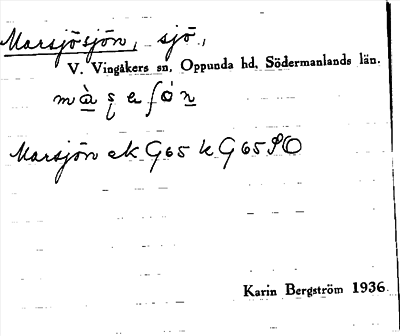 Marsjösjön, sjö,
V. Vingåkers sn, Oppunda hd, Södermanlands län.
Marsjön eK G65 k G65 SO
Karin Bergström 1936.